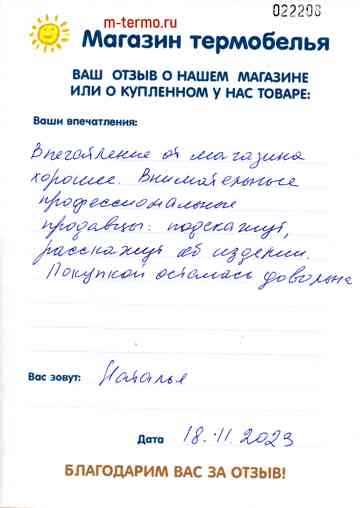 022208
m-termo.ru
Магазин термобелья
ВАШ ОТЗЫВ О НАШЕМ МАГАЗИНЕ
ИЛИ О КУПЛЕННОМ У НАС ТОВАРЕ:
Ваши впечатления:
Впечатление от магазина
хорошее. Внимательные
профессиональные
продавцы: подскажут,
расскажут об изделии.
Покупкой осталась довольна
Вас зовут: Наталья
Дата 18.11.2023
БЛАГОДАРИМ ВАС ЗА ОТЗЫВ!